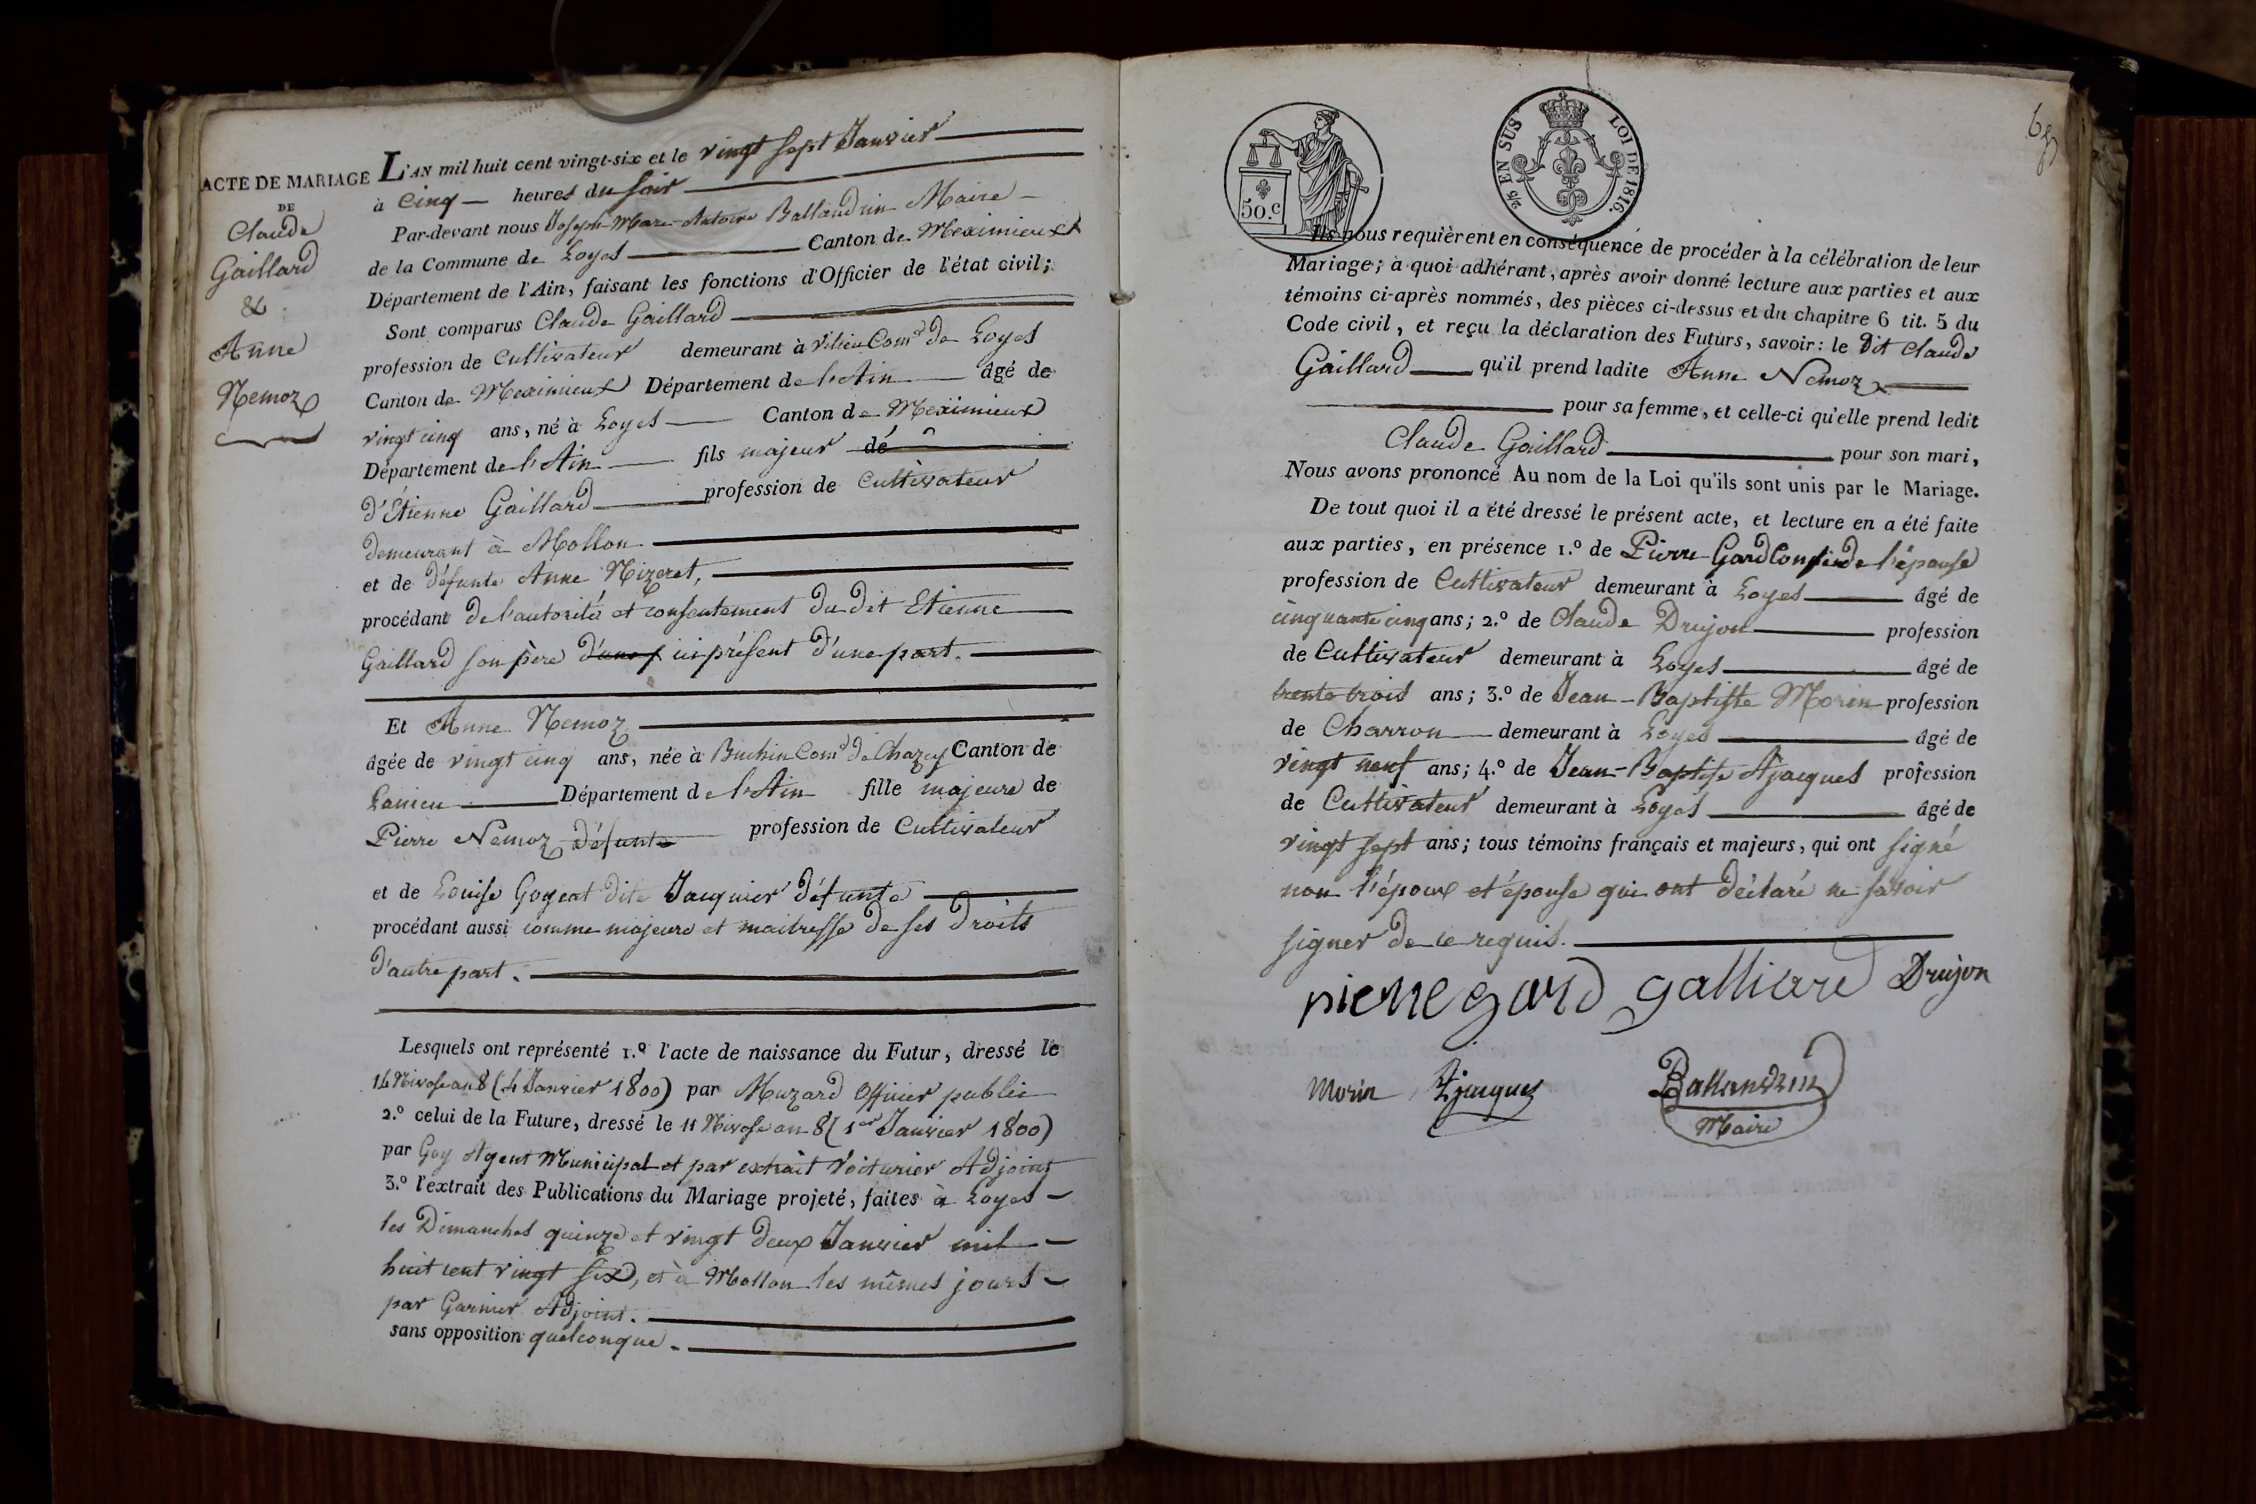 ACTE DE MARIAGE
DE
Claude
Gaillard
&
Anne
Nemoz
L'AN mil huit cent vingt-six et le vingt sept Janvier
à Cinq heures du soir
Par-devant nous Joseph-Marc-Antoine Ballandrin Maire
de la Commune de Loyes Canton de Meximieux
Département de l'Ain, faisant les fonctions d'Officier de l'état civil;
Sont comparus Claude Gaillard
profession de Cultivateur demeurant à Vilieu Com.e de Loyes
Canton de Meximieux Département de l'Ain âgé de
vingt cinq ans, né à Loyes Canton de Meximieux
Département de l'Ain fils majeur de
d'Étienne Gaillard profession de Cultivateur
demeurant à Mollon
et de défunte Anne Nizeret,
procédant de l'autorité et consentement du dit Etienne
Gaillard son père d'une ici présent d'une part.
Et Anne Nemoz
âgée de vingt cinq ans, née à Buchin Com.e de Chazey Canton de
Lanieu Département de l'Ain fille majeure de
Pierre Nemoz défunte profession de Cultivateur
et de Louise Gogeat dite Jacquier défunte
procédant aussi comme majeure et maitresse de ses droits
d'autre part.
Lesquels ont représenté 1.º l'acte de naissance du Futur, dressé le
14 Nivose an 8 (4 Janvier 1800) par Muzard Officier public
2.º celui de la Future, dressé le 11 Nivose an 8 (1er Janvier 1800)
par Goy Agent Municipal et par extrait Voiturier Adjoint
3.º l'extrait des Publications du Mariage projeté, faites à Loyes
les Dimanches quinze et vingt deux Janvier mil
huit cent vingt six, et à Mollon les mêmes jours
par Garnier Adjoint.
sans opposition quelconque.
50.c
2/5 EN SUS LOI DE 1816.
Ils nous requièrent en conséquence de procéder à la célébration de leur
Mariage; à quoi adhérant, après avoir donné lecture aux parties et aux
témoins ci-après nommés, des pièces ci-dessus et du chapitre 6 tit. 5 du
Code civil, et reçu la déclaration des Futurs, savoir: le dit Claude
Gaillard qu'il prend ladite Anne Nemoz
pour sa femme, et celle-ci qu'elle prend ledit
Claude Gaillard pour son mari,
Nous avons prononcé Au nom de la Loi qu'ils sont unis par le Mariage.
De tout quoi il a été dressé le présent acte, et lecture en a été faite
aux parties, en présence 1.º de Pierre Gard de l'épouse
profession de Cultivateur demeurant à Loyes âgé de
cinquante cinq ans; 2.º de Claude Drujon profession
de Cultivateur demeurant à Loyes âgé de
trente trois ans; 3.º de Jean-Baptiste Morin profession
de Charron demeurant à Loyes âgé de
vingt neuf ans; 4.º de Jean-Baptiste Ajacques profession
de Cultivateur demeurant à Loyes âgé de
vingt sept ans; tous témoins français et majeurs, qui ont signé
non l'époux et épouse qui ont déclaré ne savoir
signer de ce requis.
pierre gard galliard Drujon
Morin Ajacques Ballandrin
Maire